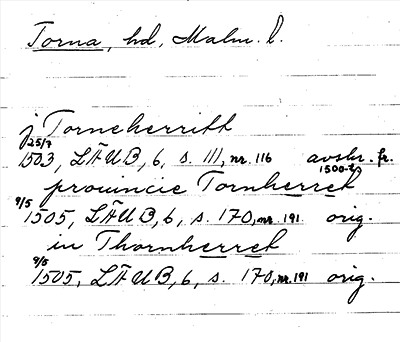 Torna, hd, Malm. l.
j Torneherritt
25/7 1503, LÄUB, 6, s. 111, nr. 116 avskr. fr. 1500-t.
provincie Tornherret
9/5 1505, LÄUB, 6, s. 170, nr. 191. orig.
in Thornherret
9/5 1505, LÄUB, 6, s. 170, nr. 191 orig.